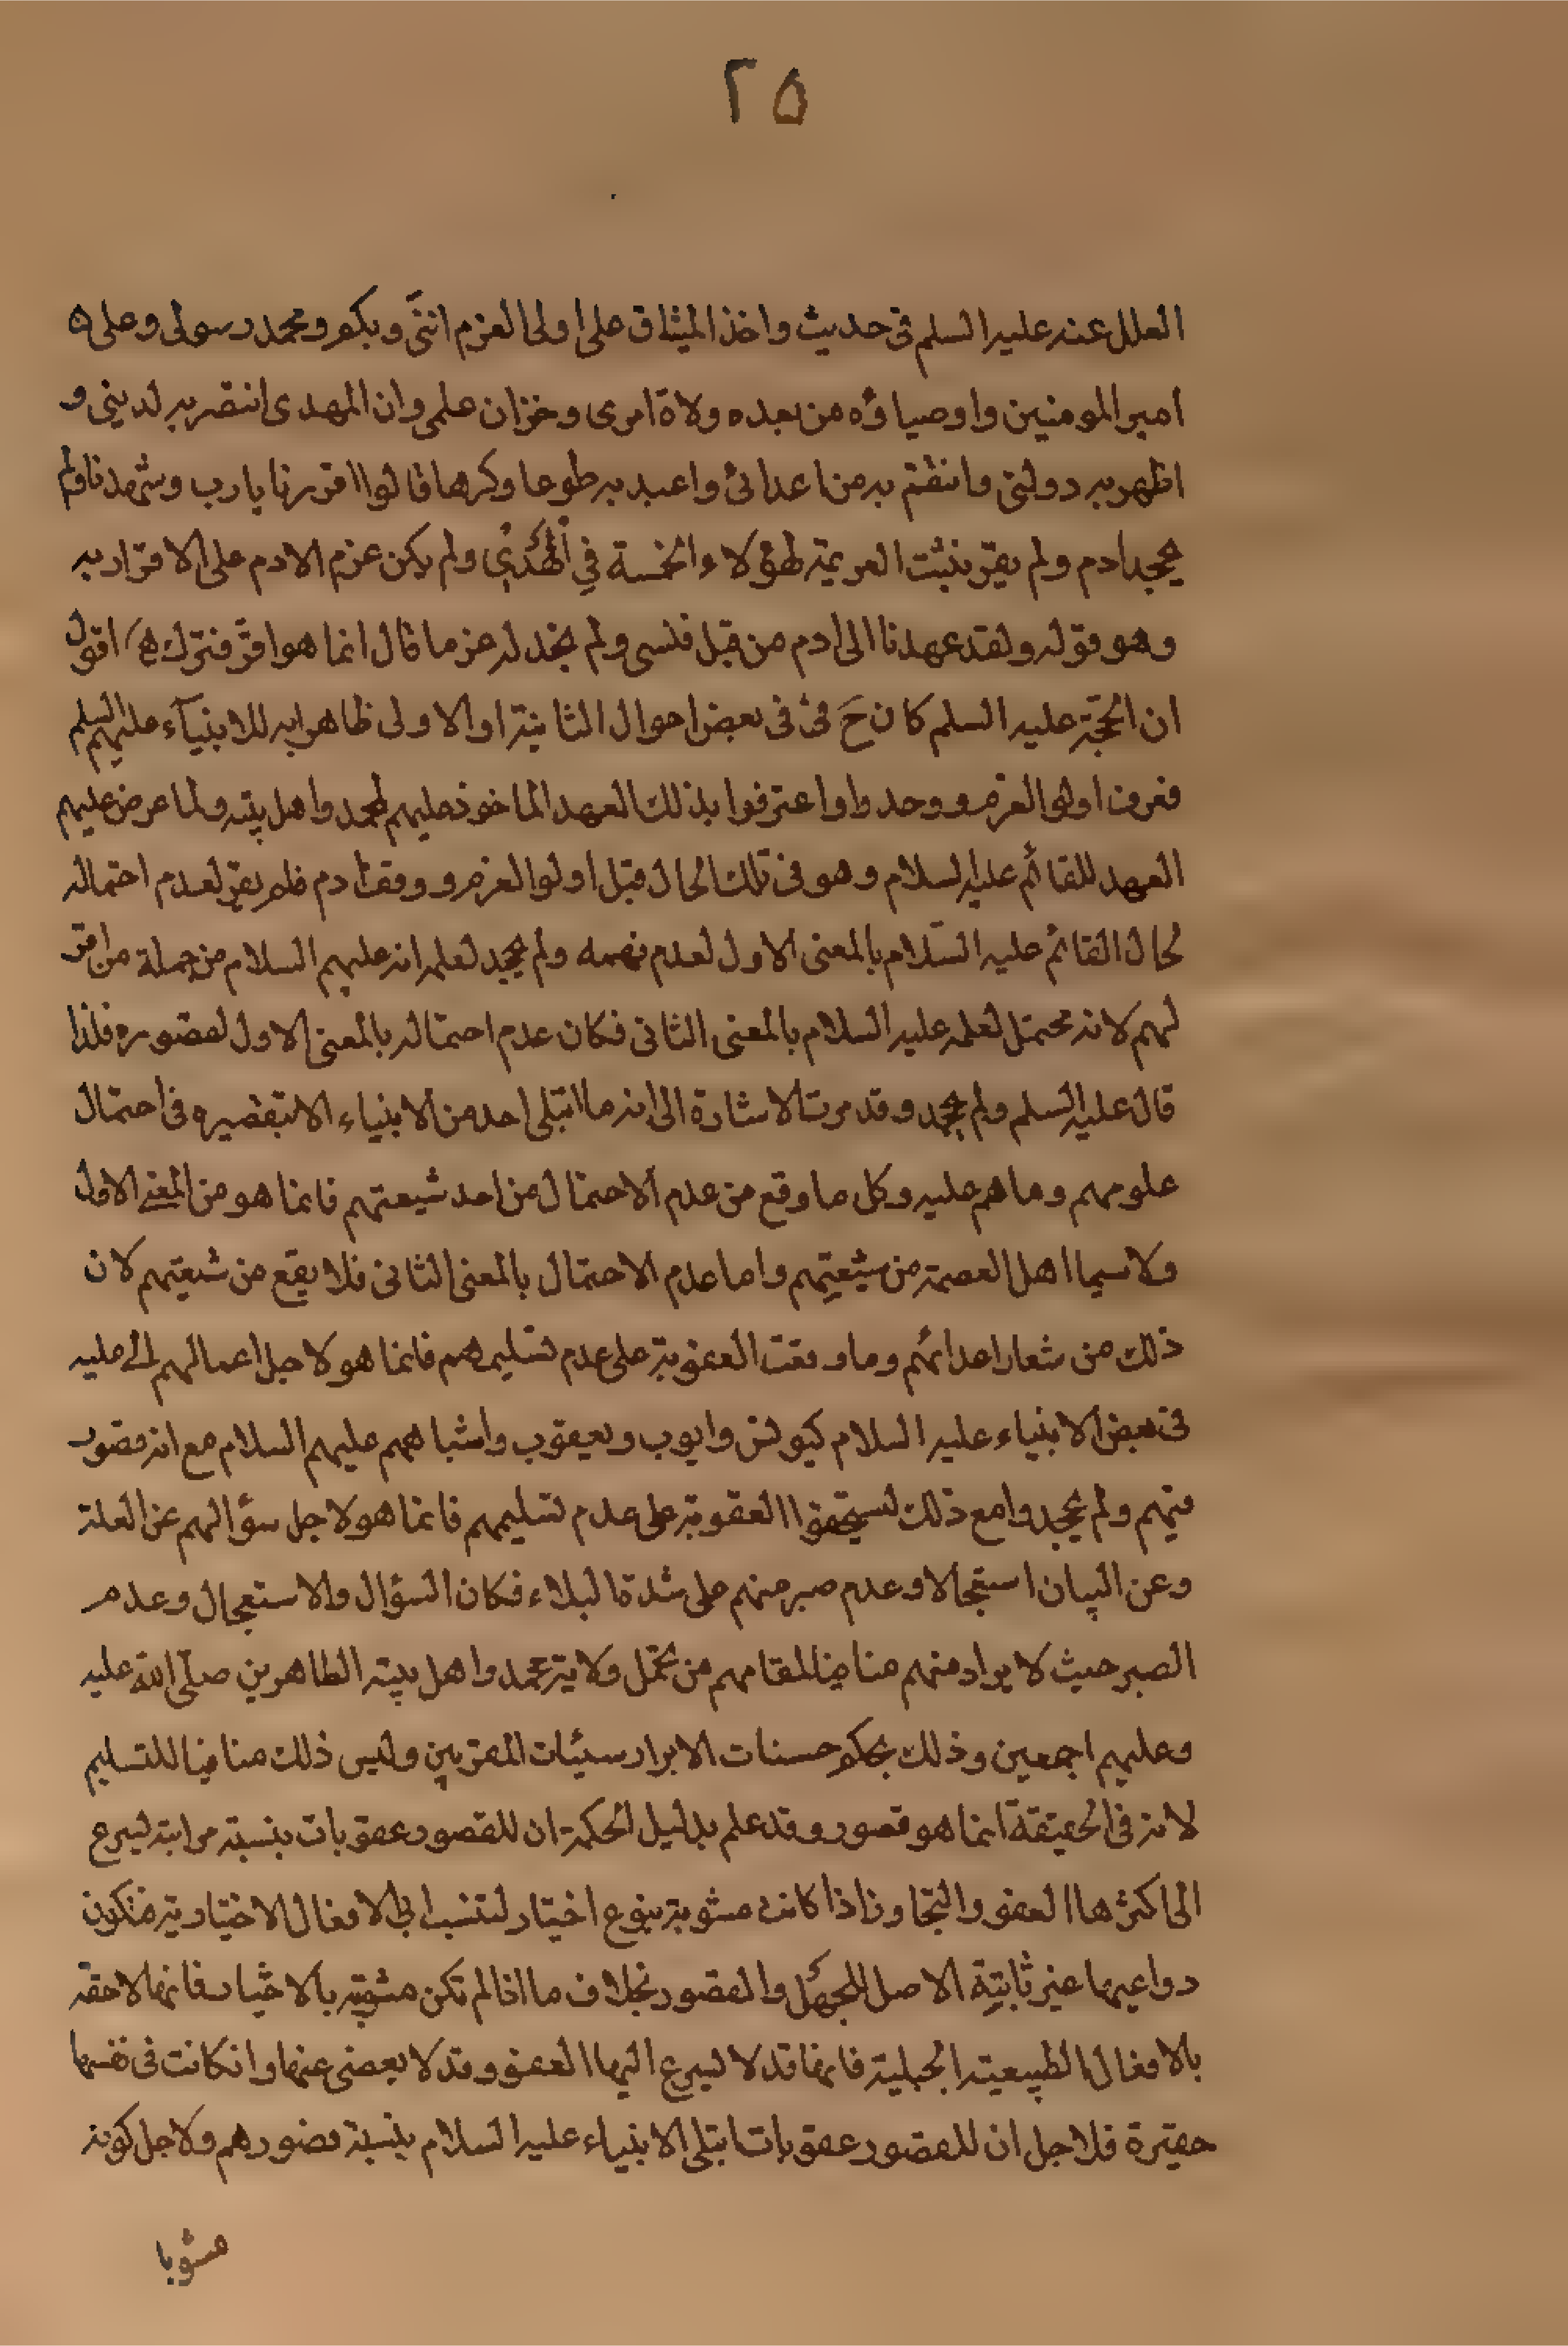 ٢٥
العلل عنه عليه السلم فى حديث واخذ الميثاق على اولى العزم اننى ربكم ومحمد رسولى وعلى
امير المومنين واوصياؤه من بعده ولاة امرى وخزان علمى وان المهدى انتصر به لدينى و
اظهر به دولتى وانتقم به من اعدائى واعبد به طوعا وكرها قالوا اقررنا يارب وشهدنا ولم
يجحد ادم ولم يقر فثبت العزيمة لهؤلاء الخمسة في المهدي ولم يكن عزم الادم على الاقرار به
وهو قوله ولقد عهدنا الى ادم من قبل فنسى ولم نجد له عزما قال انما هو اقر فترك اقول
ان الحجة عليه السلم كان فى بعض احوال الثانية او الاولى ظاهرا به للانبيآء عليهم السلم
فعرف اولوا العزم ووحدوا واعترفوا بذلك العهد الماخوذ عليهم لمحمد واهل بيته ولما عرض عليهم
العهد للقائم عليه السلام وهو فى تلك الحال قبل اولوا العزم ووقف ادم فلم يقر لعدم احتماله
لحال القائم عليه السلام بالمعنى الاول لعدم فهمه ولم يجحد لعلمه انه عليهم السلام من جملة من اقر
لهم لانه محتمل لعلمه عليه السلام بالمعنى الثانى فكان عدم احتماله بالمعنى الاول لقصوره فلذا
قال عليه السلم ولم يجحد وقد مرت الاشارة الى انه ما ابتلى احد من الانبياء الا بتقصيره فى احتمال
علومهم وما هم عليه وكل ما وقع من عدم الاحتمال من احد شيعتهم فانما هو من المعنى الاول
ولاسيما اهل العصمة من شيعتهم واما عدم الاحتمال بالمعنى الثانى فلا يقع من شيعتهم لان
ذلك من شعار اعدائهم وما وقعت العقوبة على عدم تسليمهم فانما هو لاجل اعمالهم عليه
فى بعض الانبياء عليه السلام كيونس وايوب ويعقوب واشباههم عليهم السلام مع انه قصور
فيهم ولم يجحدوا مع ذلك ليستحقوا العقوبة على عدم تسليمهم فانما هو لاجل سؤالهم عن العلة
وعن البيان استعجالا وعدم صبر منهم على شدة البلاء فكان السؤال والاستعجال وعدم
الصبر حيث لا يراد منهم منافيا لمقامهم من تحمل ولاية محمد واهل بيته الطاهرين صلى الله عليه
وعليهم اجمعين وذلك بحكم حسنات الابرار سيئات المقربين وليس ذلك منافيا للتسليم
لانه فى الحقيقة انما هو قصور وقد علم بدليل الحكمة ان للقصور عقوبات بنسبة مراتبه ليسرع
الى اكثرها العفو والتجاوز اذا كانت مشوبة بنوع اختيار لتنسب الى الافعال الاختيارية فتكون
دواعيها غير ثابتة الاصل للجهل والقصور بخلاف ما اذا لم تكن مشوبة بالاختيار فانها لاحقة
بالافعال الطبيعية الجبلية فانها قد لا ليسرع اليها العفو وقد لا يعفى عنها وان كانت فى نفسها
حقيرة فلاجل ان للقصور عقوبات ابتلى الانبياء عليه السلام بنسبة قصورهم ولاجل كونه
مشوبا